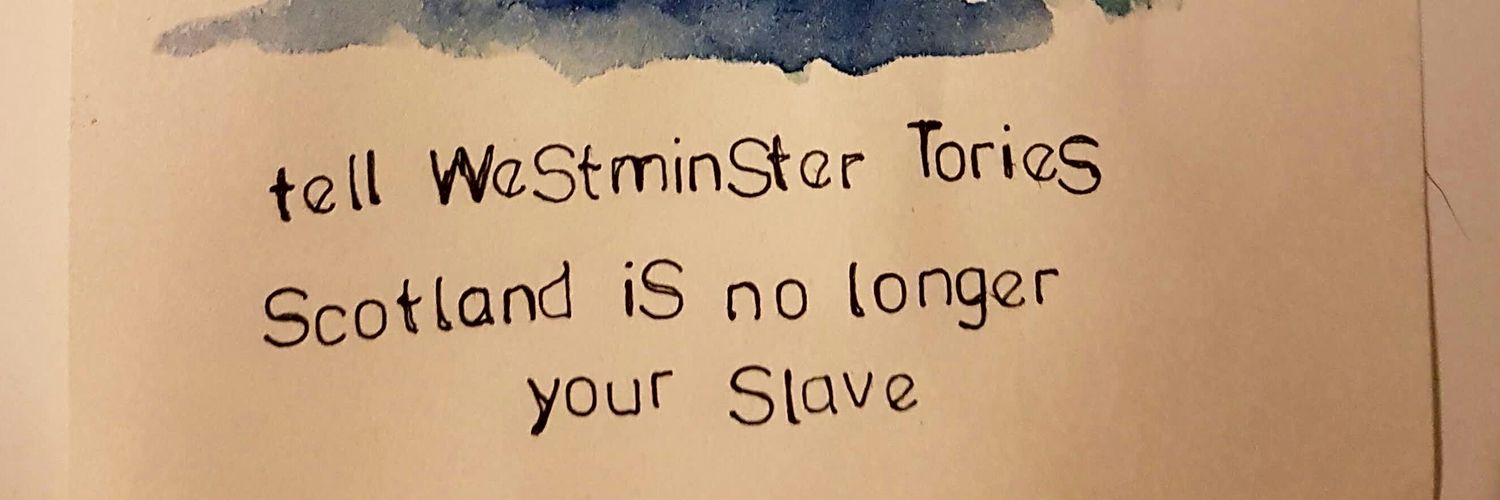 tell WeStminSter Tories
Scotland iS no longer
your Slave